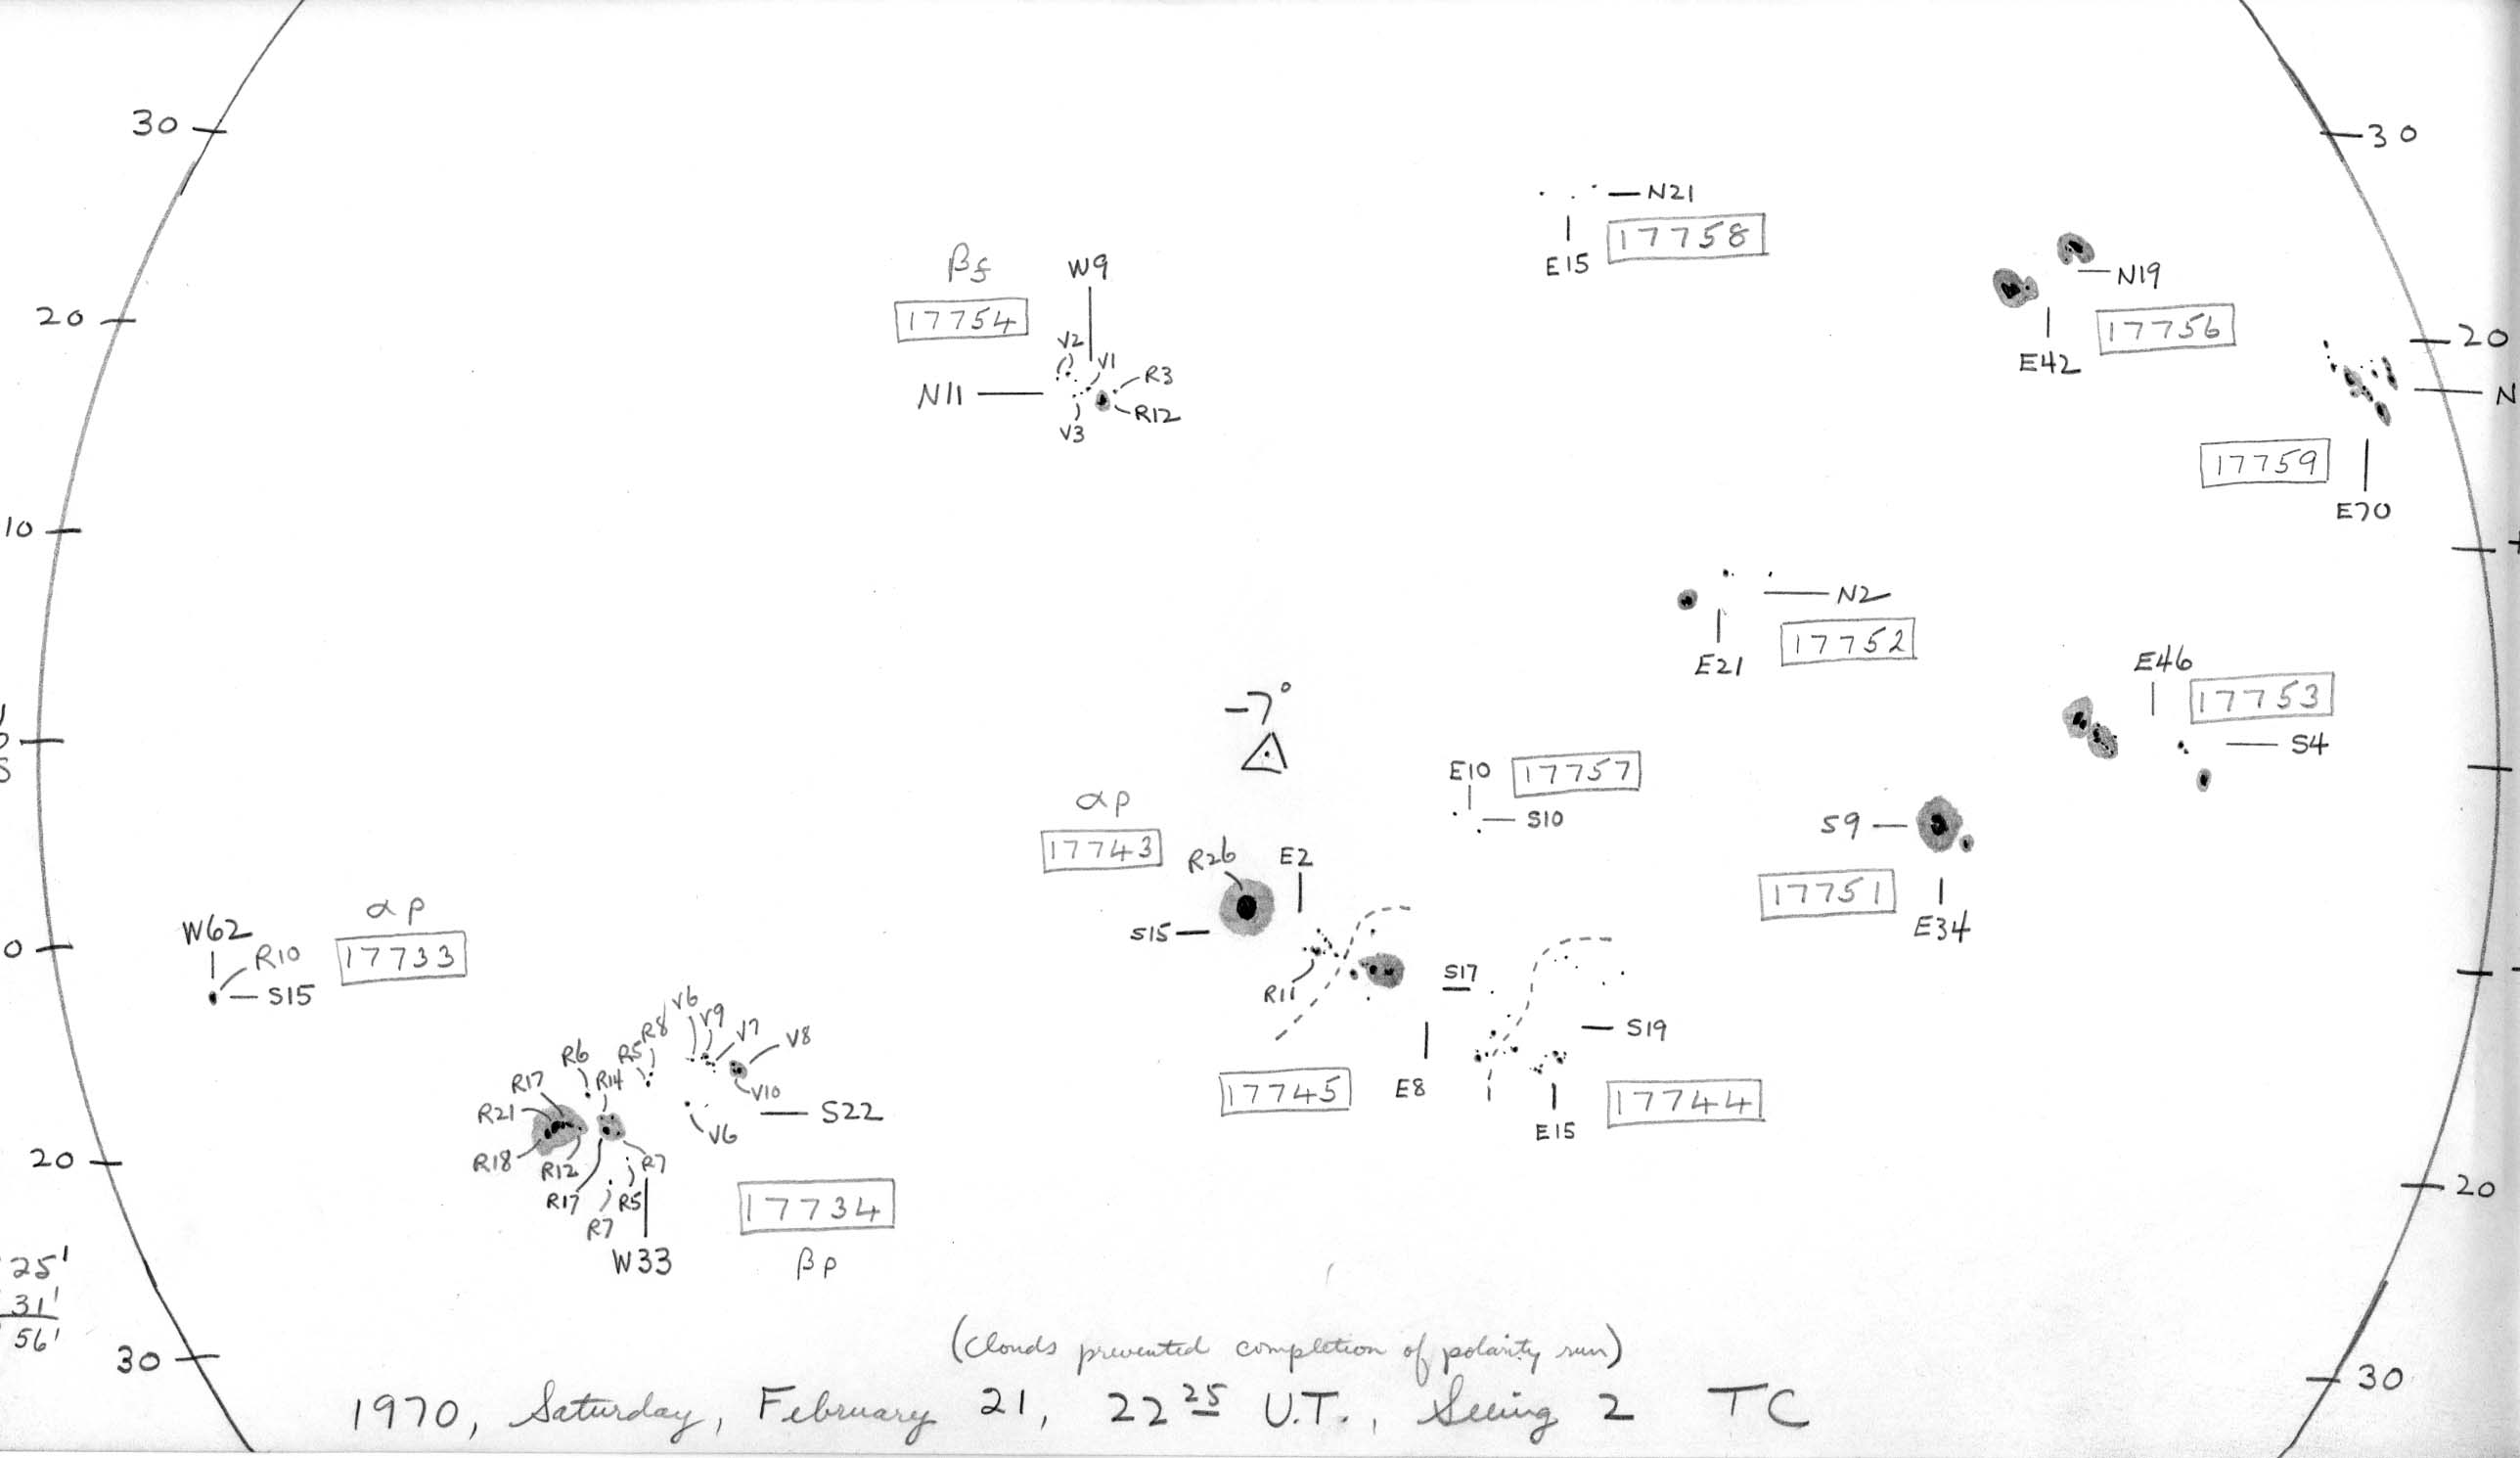 30
30
N21
17758
E15
βf
W9
N19
17754
20
17756
20
V2
E42
V1
R3
N11
R12
N
V3
17759
E70
10
N2
17752
E21
E46
17753
-7°
S4
E10
17757
αp
S10
S9
17743
R26
E2
17751
αp
W62
S15
E34
R10
17733
0
S17
S15
R11
V6
V9
V7
V8
R8
S19
R6
R5
R14
R17
17745
E8
17744
V10
R21
S22
E15
V6
R18
R12
R7
20
20
R17
R5
17734
R7
W33
βp
25'
31'
56'
(Clouds prevented completion of polarity run)
30
30
1970, Saturday, February 21, 22 25 U.T., Seeing 2 TC